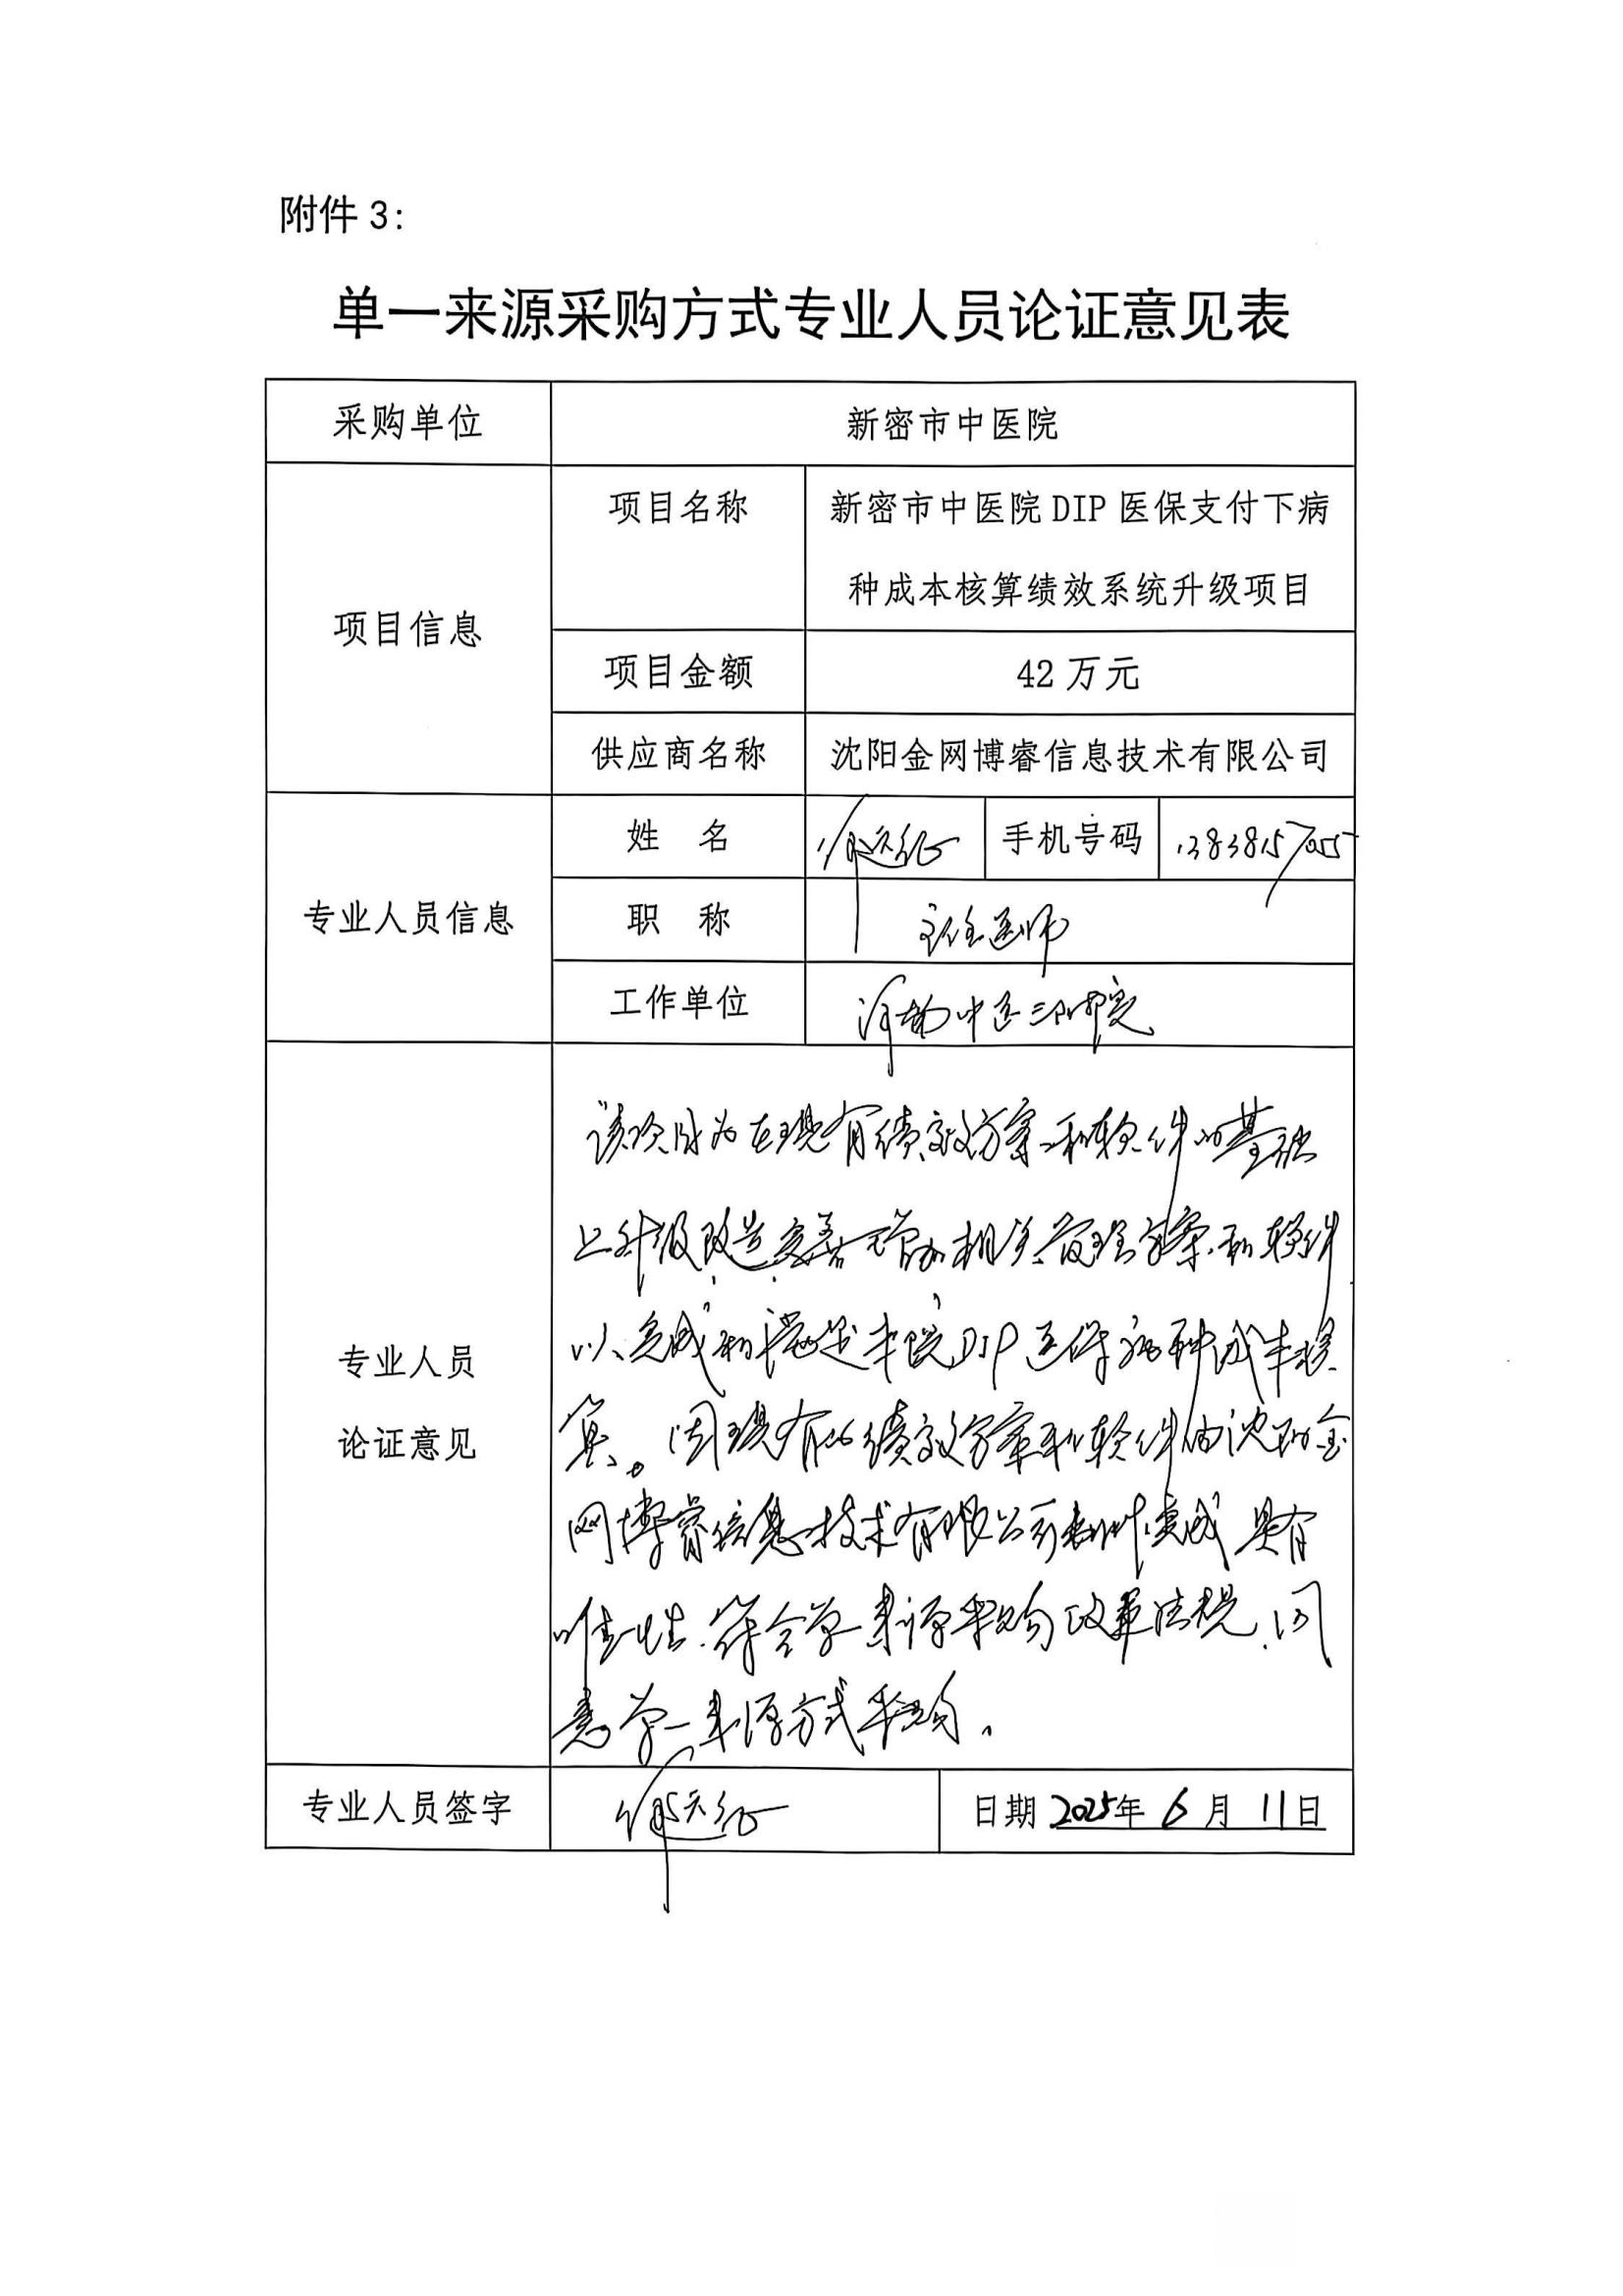 附件 3：
单一来源采购方式专业人员论证意见表
采购单位 新密市中医院
项目信息 项目名称 新密市中医院 DIP 医保支付下病
种成本核算绩效系统升级项目
项目金额 42 万元
供应商名称 沈阳金网博睿信息技术有限公司
专业人员信息 姓 名 手机号码
职 称 主任医师
工作单位 河南中医三附院
专业人员
论证意见
该项目为在现有绩效方案和软件的基础
上升级改造完善增加相关管理方案和软件
以完成和满足本院DIP医保病种成本核
算。因现有的绩效方案和软件由沈阳金
网博睿信息技术有限公司 完成 具有
唯一性.符合单一来源采购政策法规.同
意单一来源方式采购.
专业人员签字 日期 2025年 6 月 11日